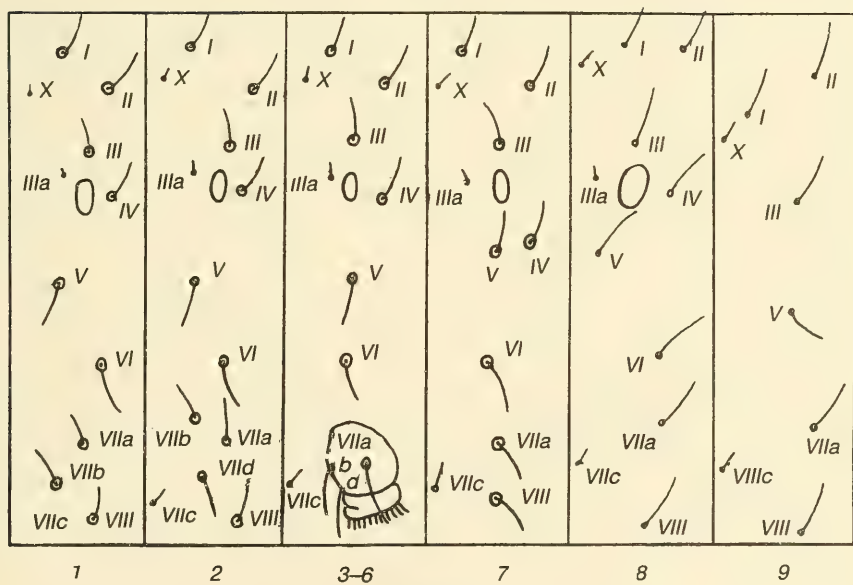 I
X
II
III
IIIa
IV
V
VI
VIIa
VIIb
VIIc VIII
1
I
X
II
IIi
IIIa
IV
V
VI
VIIb VIIa
VIId
VIIc VIII
2
I
X
II
III
IIIa
IV
V
VI
VIIa
b
d
VIIc
3–6
I
X
II
III
IIIa
V IV
VI
VIIa
VIIc
VIII
7
I
II
X
III
IIIa
IV
V
VI
VIIa
VIIc
VIII
8
II
I
X
III
V
VIIa
VIIIc
VIII
9